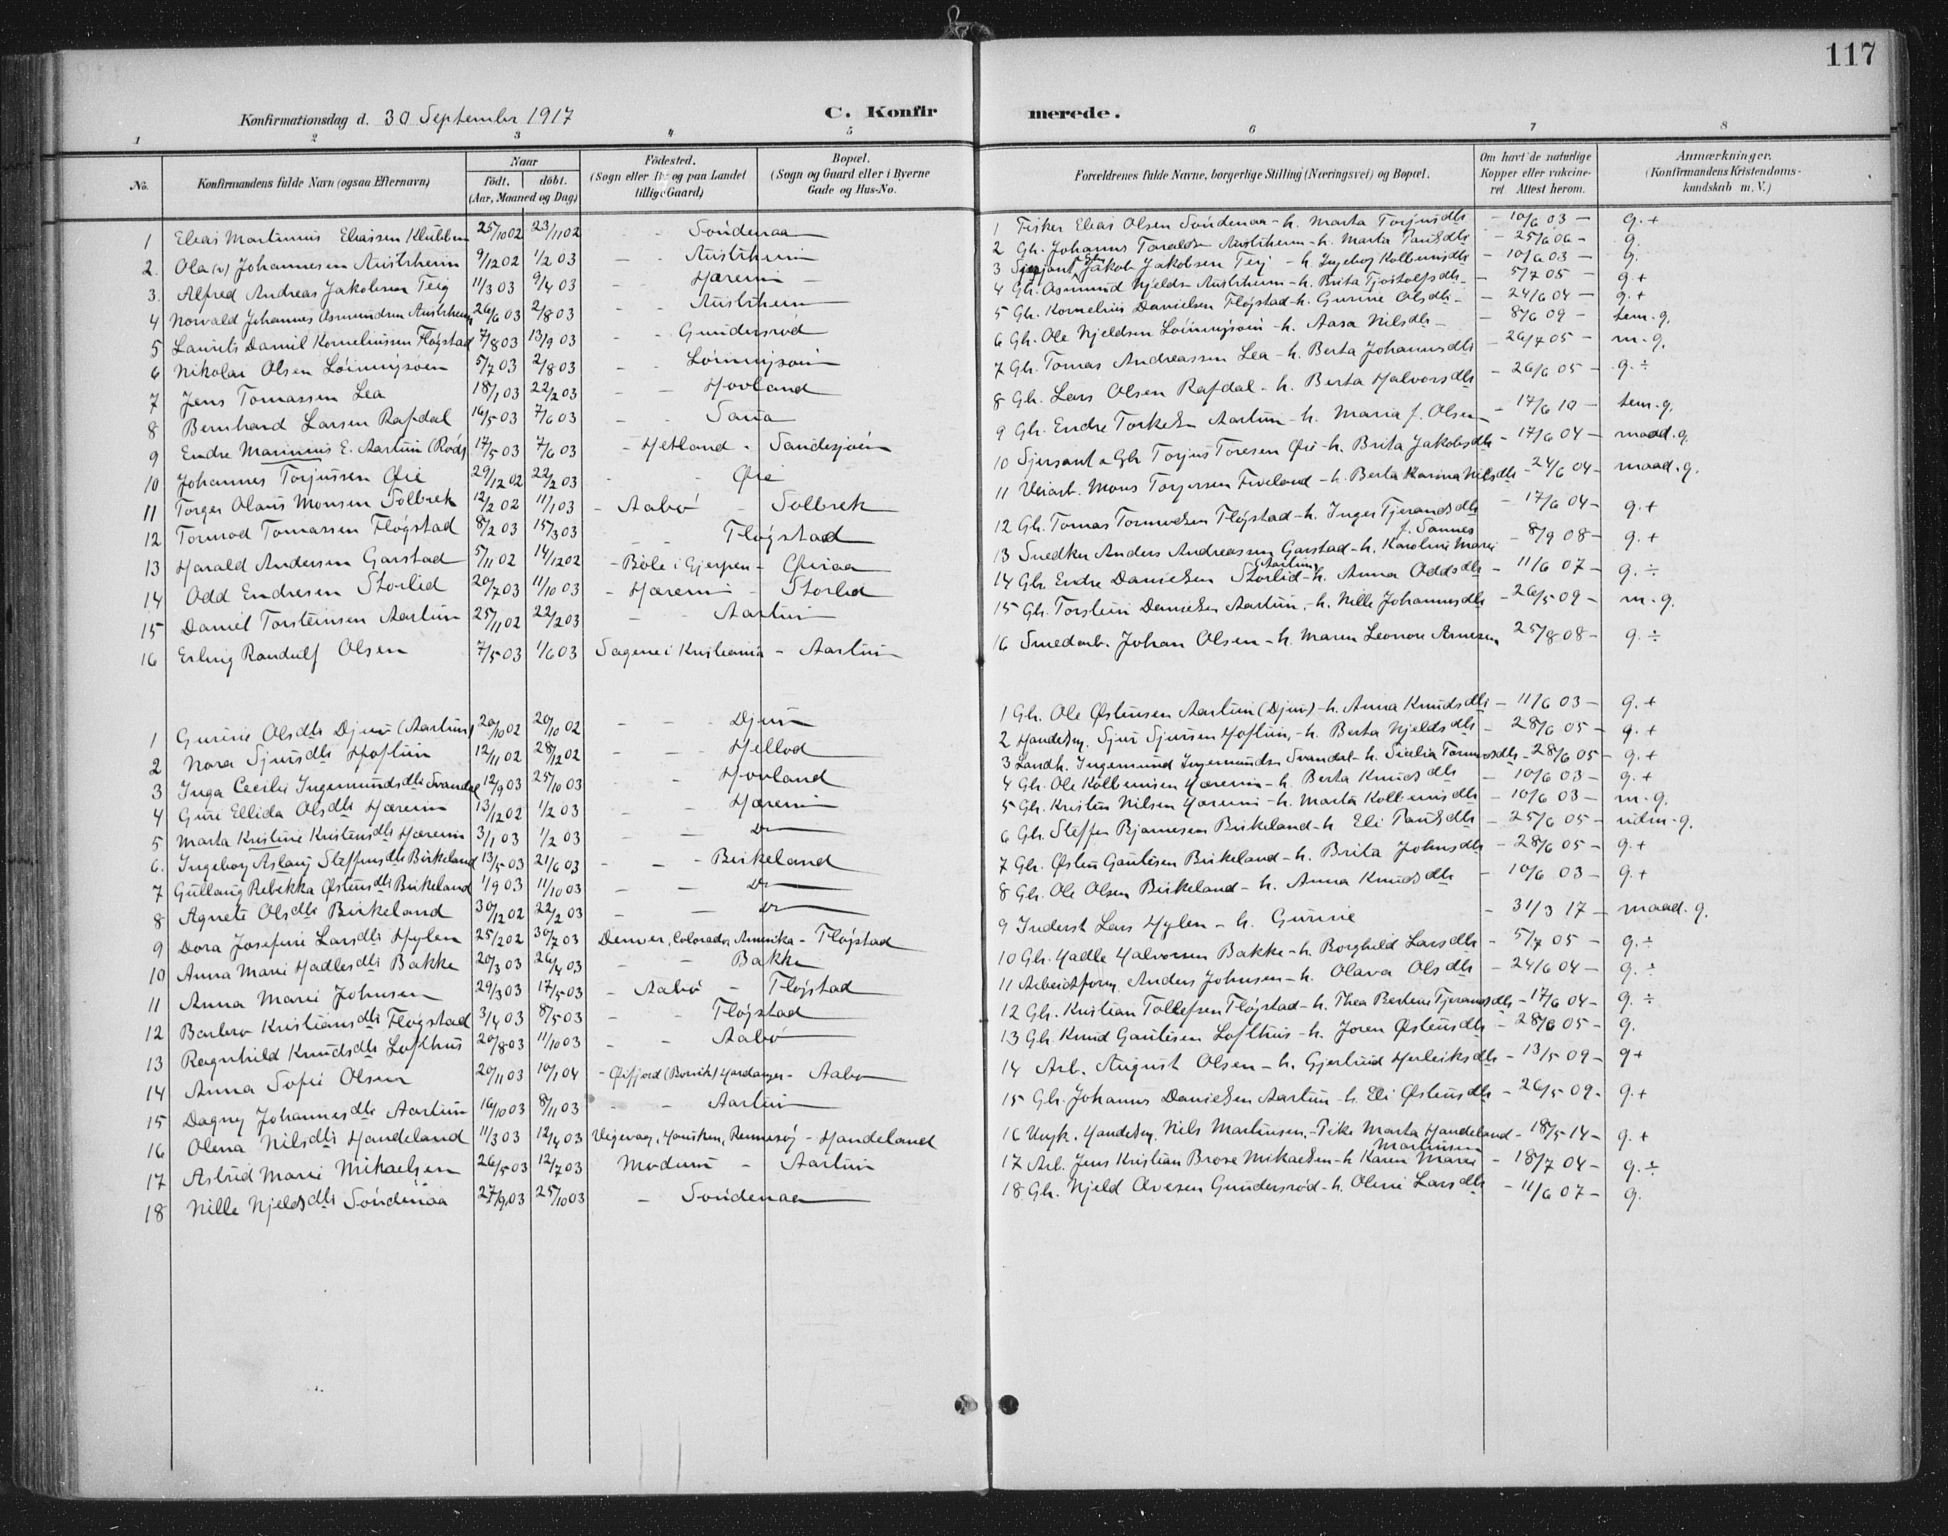 117
Konfirmationsdag d. 30 September 1917
C. Konfirmerede.
1 2 3 4 5 6 7 8
No.
Konfirmandens fulde Navn (ogsaa Efternavn)
Naar
født. døbt.
(Aar, Maaned og Dag)
Fødested.
(Sogn eller By og paa Landet
tillige Gaard)
Bopæl.
(Sogn og Gaard eller i Byerne
Gade og Hus-No.
Forældrenes fulde Navne, borgerlige Stilling (Næringsvei) og Bopæl.
Om havt de naturlige
Kopper eller vakcine-
ret. Attest herom.
Anmærkninger.
(Konfirmandens Kristendoms-
kundskab m. V.)
1 Elias Martinius Eliassen Klubben 25/10 02 23/11 02 - - Søndenaa 1 Fisker Elias Olsen Søndenaa - h. Marta Torjusdtr - 10/6 03 - g. +
2. Ola(v) Johannesen Austrheim 9/12 02 1/2 03 - - Austrheim 2 Gb. Johannes Taraldsen Austrheim - h. Marta Paulsdtr - 25/6 06 - g.
3. Alfred Andreas Jakobsen Teig 11/3 03 9/4 03 - Hæreim - 3 Jakob Jakobsen Teig - h. Ingeborg Kolbeinsdtr - 10/6 03 - g.
4 Norvald Johannes Asmundsen Austrheim 26/6 03 2/8 03 - - Austrheim 4 Gb. Asmund Njeldsen Austrheim - h. Brita Tjostolfsdtr - 5/7 05 - g +
5 Laurits Daniel Korneliussen Fløgstad 7/8 03 13/9 03 - - Gundersrød 5 Gb. Kornelius Danielsen Fløgstad - h. Gurine Olsdtr - 24/6 04 - g. +
6 Nikolai Olsen Løiningsøen 5/7 03 2/8 03 - - Løiningsøen 6 Gb. Ole Njeldsen Løiningsøen - h. Aasa Nilsdtr - 8/6 09 - tem. g.
7 Jens Tomassen Lea 18/1 03 22/2 03 - - Hovland 7 Gb. Tomas Andreassen Lea - h. Berta Johannesdtr - 26/7 05 - m - g.
8 Bernhard Larsen Rafdal 16/5 03 7/6 03 - - Sana 8 Gb. Lars Olsen Rafdal - h. Berta Halvorsdtr - 26/6 05 - g. ÷
9 Endre Marinius E. Aartun 17/5 03 7/6 03 - Hetland - Sandesjøen 9 Gb. Endre Torkelsen Aartun - h. Maria f. Olsen - 17/6 10 - tem. g.
10 Johannes Torjussen Øie 29/12 02 22/2 03 - - Øie 10 Gb. Torjus Toresen Øie - h. Brita Jakobsdtr - 17/6 04 - maad. g.
11 Torger Olaus Monsen Solbrek 12/2 02 11/1 03 - Aabø - Solbrek 11 Veiarb. Mons Torgersen Fiveland - h. Berta Karina Nilsdtr - 24/6 04 - maad. g.
12 Tormod Tomassen Fløgstad 8/2 03 15/3 03 - - Fløgstad 12 Gb. Tomas Tormodsen Fløgstad - h. Inger Tjerandsdtr - 17/6 04 - g. +
13 Harald Andersen Garstad 5/11 02 14/12 02 - Bøle i Gjerpen - 13 Snedker Anders Andreassen Garstad - h. Karoline Marie f. Sannes - 8/9 08 - g. +
14 Odd Endresen Storlid 20/7 03 11/10 03 - Hæreim - Storlid 14 Gb. Endre Danielsen Aartun Storlid - h. Anna Oddsdtr - 11/6 07 - g. ÷
15 Daniel Torsteinsen Aartun 25/11 02 22/2 03 - - Aartun 15 Gb. Torstein Danielsen Aartun - h. Nille Johannesdtr - 26/5 09 - m - g.
16 Erling Randulf Olsen 7/5 03 1/6 03 Sagene i Kristiania - Aartun 16 Smedarb. Johan Olsen - h. Maren Leonore Arnesen 25/8 08 - g. ÷
1 Gurine Olsdtr Djuv (Aartun) 20/10 02 - - Djuv 1 Gb. Ole Østensen Aartun (Djuv) - h. Anna Knudsdtr - 11/6 03 - g. +
2 Nora Sjursdtr Hoftun 12/11 02 28/12 02 - - Hellod 2 Handelsm. Sjur Sjursen Hoftun, - h. Berta Njeldsdtr - 28/6 05 - g. +
3 Inga Cecilie Ingemundsdtr Svandal 12/9 03 25/10 03 - Hovland 3 Landh. Ingemund Ingemundsen Svandal - h. Sicilia Tormodsdtr - 28/6 05 - g. +
4 Guri Ellida Olsdtr Hæreim 13/12 02 1/2 03 - Hæreim 4 Gb. Ole Kolbeinsen Hæreim - h. Berta Knudsdtr - 10/6 03 - g. +
5 Marta Kristine Kristensdtr Hæreim 3/1 03 1/2 03 - - Do 5 Gb. Kristen Nilsen Hæreim - h. Marta Kolbeinsdtr - 10/6 03 - m - g.
6. Ingeborg Aslaug Steffensdtr Birkeland 13/5 03 21/6 03 - - Birkeland 6 Gb. Steffen Bjarnesen Birkeland - h Eli Paulsdtr - 25/6 05 - g.
7 Gullaug Rebekka Østensdtr Birkeland 1/9 03 11/10 03 - - Do 7 Gb. Østen Gautesen Birkeland - h. Brita Johnsdtr - 28/6 05 - g. +
8 Agnete Olsdtr Birkeland 30/12 02 22/2 03 - - Do 8 Gb. Ole Olsen Birkeland - h. Anna Knudsdtr - 10/6 03 - g. +
9 Dora Josefine Larsdtr Hylen 25/2 02 30/7 03 Denver, Colorado, Amerika - Fløgstad 9 Inderst Lars Hylen - h. Gurine - 31/3 17 - maad. g.
10 Anna Marie Hadlesdtr Bakke 20/3 03 26/4 03 - - Bakke 10 Gb. Hadle Halvorsen Bakke - h. Borghild Larsdtr - 5/7 05 - g. ÷
11 Anna Marie Johnsen 29/3 03 17/5 03 - Aabø - Fløgstad 11 Arbeidsform. Anders Johnsen - h. Olava Olsdtr - 24/6 04 - g. ÷
12 Barbro Kristiansdtr Fløgstad 3/4 03 8/5 03 - - Fløgstad 12 Gb. Kristian Tollefsen Fløgstad - h. Thea Bertine Tjerandsdtr - 17/6 04 - g. ÷
13 Ragnhild Knudsdtr Lofthus 20/8 03 11/10 03 - - Aabø 13 Gb. Knud Gautesen Lofthus - h. Joren Østensdtr - 28/6 05 - g.
14 Anna Sofie Olsen 20/11 03 10/1 04 - Hardanger - Aabø 14 Arb. August Olsen - h. Gjertrud Herleiksdtr - 13/5 09 - g +
15 Dagny Johannesdtr Aartun 16/10 03 8/11 03 - - Aartun 15 Gb. Johannes Danielsen Aartun - h. Eli Østensdtr - 26/5 09 - g. +
16 Olena Nilsdtr Handeland 11/3 03 12/4 03 Vigevaag, Hausken, Rennesøy - Handeland 16 Ungk. Handelsm. Nils Martinsen, - Pike Marta Handeland - 18/5 14 - g. +
17 Astrid Marie Mikaelsen 26/5 03 12/7 03 Modum - Aartun 17 Arb. Jens Kristian Brose Mikaelsen - h Karen Marie Martinsen - 18/7 04 - g. ÷
18 Nille Njeldsdtr Søndenaa 27/9 03 25/10 03 - Søndenaa 18 Gb. Njeld Avesen Gundersrød - h. Oline Larsdtr - 11/6 07 - g.